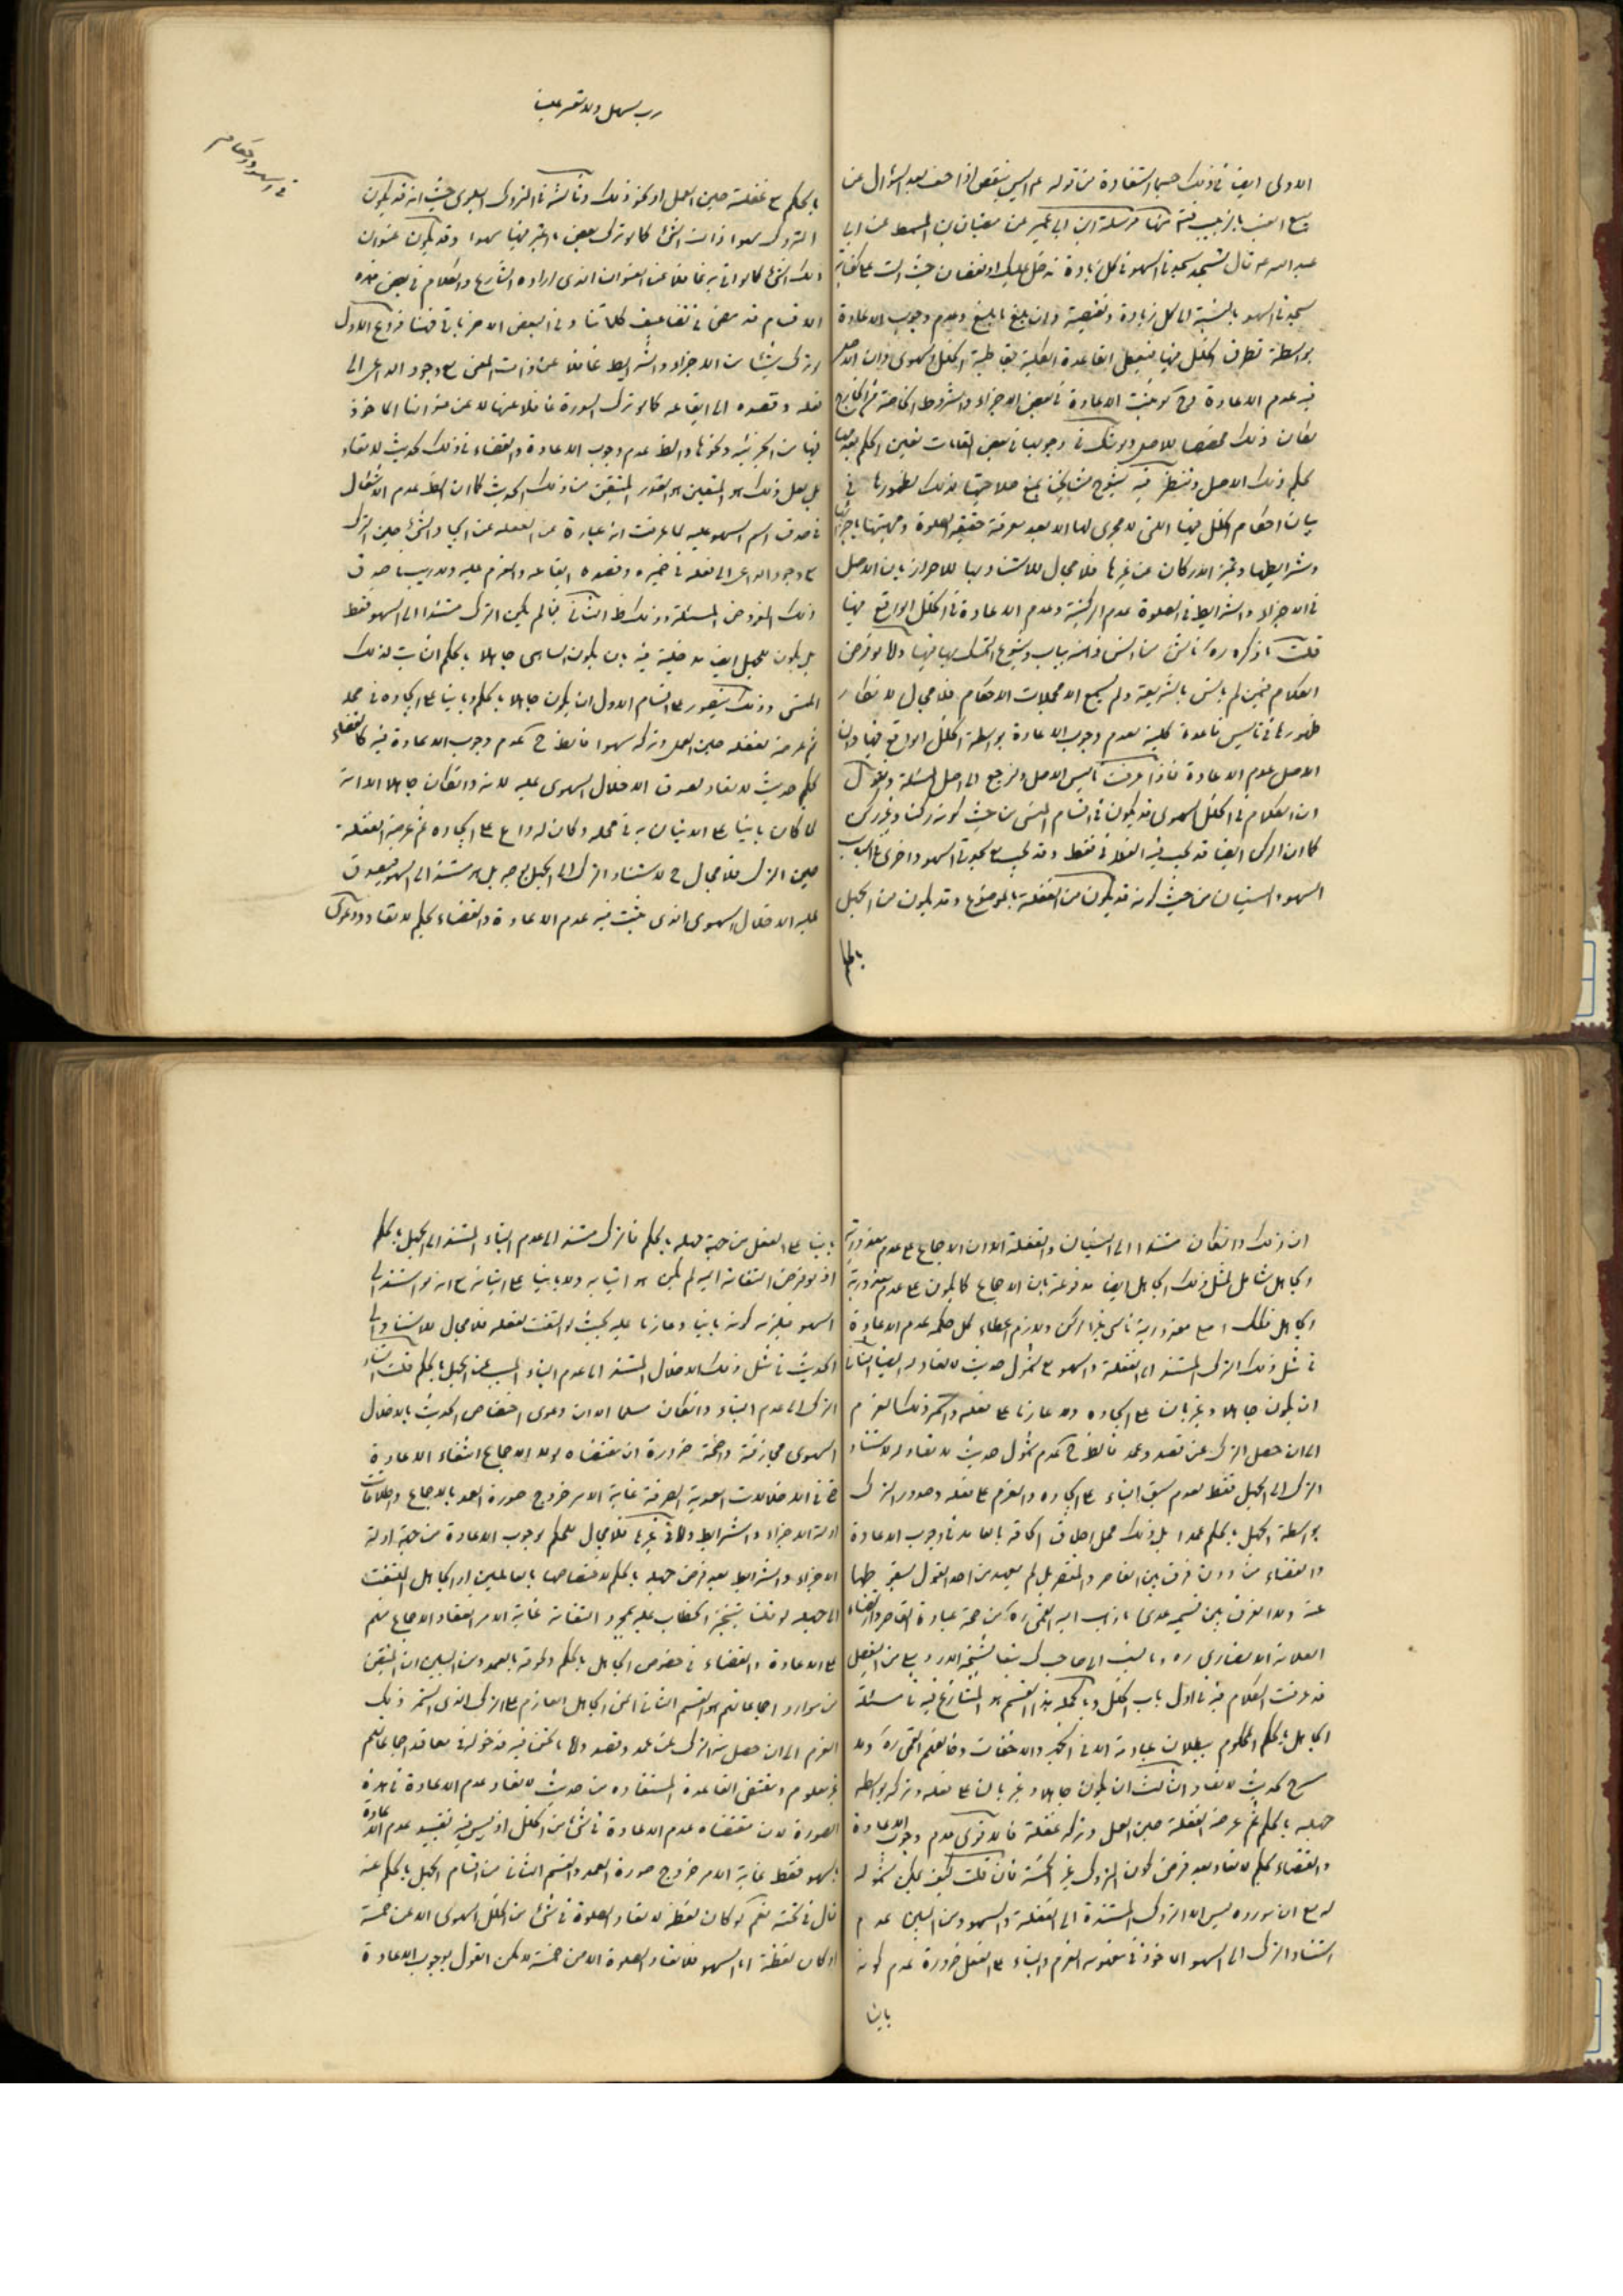 الاولى ايضا في ذلك حسبما استفادة من قوله ع اليس ينقص اذا جف بعد السؤال عن
بيع العنب بالزبيب ثم منها مرسلة ابن ابي عمير عن سفيان بن السمط عن ابي
عبد الله ع قال تسجد سجدتي السهو في كل زيادة تدخل عليك او نقصان حيث
سجدتي السهو بالنسبة الى كل زيادة ونقيصة وان بلغ ما بلغ وعدم وجوب الاعادة
بواسطة تطرق الخلل فيها فيعطى القاعدة الكلية بقاطبة الخلل السهوى وان الاصل
فيه عدم الاعادة فح لو ثبت الاعادة في بعض الاجزاء والشروط الخاصة من الخارج
لكان ذلك مخصصا للاصل ولو شك في وجوبها في بعض المقامات تعين الحكم بعدمها
بحكم ذلك الاصل
بيان احكام الخلل فيها التى لا مجرى لها الا بعد معرفة حقيقة الصلوة ومهيتها باجزائها
وشرايطها وتميز الاركان عن غيرها فلا مجال للاستناد بها للاحراز بان الاصل
في الاجزاء والشرايط في الصلوة عدم الركنية وعدم الاعادة في الخلل الواقع فيها
قلت ما ذكره ره ناش من انس ذهنه بباب وشيوع التمسك بها فيها والا لو فرض
الكلام فيمن لم يانس بالشريعة ولم يسمع الا مجملات الاحكام فلا مجال لانكار
ظهورها في تاسيس قاعدة كلية بعدم وجوب الاعادة بواسطة الخلل الواقع فيها وان
الاصل عدم الاعادة فاذا عرفت تاسيس الاصل فلنرجع الى اصل المسئلة ونقول
ان الكلام في الخلل السهوى قد يكون في اقسام المنسى من حيث كونه ركنا وغير ركن
كما ان الركن ايضا قد يجب فيه القضاء فقط وقد يجب مع سجدتي السهو واخرى في اسباب
السهو والنسيان من حيث كونه قد يكون من الغفلة بالموضوع وقد يكون من الجهل
بالحكم
رب سهل ولا تعسر علينا
بالحكم مع غفلته حين العمل او نحو ذلك وثالثة في المتروك السهوى حيث انه قد يكون
المتروك سهوا ذات الشئ كما لو ترك بعض ما اعتبر فيها سهوا وقد يكون عنوان
ذلك الشئ كما لو اتى به غافلا عن العنوان الذى اراده الشارع والكلام في بعض هذه
الاقسام قد مضى في تضاعيف كلماتنا وفي البعض الاخر ياتى فهنا فروع الاول
لو ترك شيئا من الاجزاء والشرايط غافلا عن ذات المنسى مع وجود الداعى الى
فعله وقصده الى ايقاعه كما لو ترك السورة غافلا عنها لا عن عنوانها الماخوذ
فيها من الجزئية ونحوها والظ عدم وجوب الاعادة والقضاء في ذلك لحديث لا تعاد
بل لعل ذلك هو المتعين هو القدر المتيقن من ذلك الحديث كما ان الظ عدم الاشكال
في صدق اسم السهو عليه لما عرفت انه عبارة عن الغفلة عن ايجاد الشئ حين الترك
مع وجود الداعى الى فعله في ضميره وقصده ايقاعه والعزم عليه ولا ريب في صدق
ذلك المفروض المسئلة وذلك ظ الثانى فيما لم يكن الترك مستندا الى السهو فقط
بل يكون للجهل ايضا مدخلية فيه بان يكون الساهى جاهلا بالحكم الثابت لذلك
المنسى وذلك يتصور على اقسام الاول ان يكون جاهلا بالحكم وبانيا على ايجاده في محله
ثم عرضه لغفلة حين العمل وتركه سهوا فالظ ح عدم وجوب الاعادة فيه كالقضاء
بحكم حديث لا تعاد لصدق الاخلال السهوى عليه لانه وان كان جاهلا الا انه
لما كان بانيا على الاتيان به في محله وكان له داع على ايجاده ثم عرضه الغفلة
حين الترك فلا مجال ح لاستناد الترك الى الجهل بوجه بل هو مستند الى السهو فيصدق
عليه الاخلال السهوى الذى يثبت فيه عدم الاعادة والقضاء بحكم لا تعاد ودعوى
ان ذلك وان كان مستندا الى النسيان والغفلة الا ان الاجماع على عدم معذورية
الجاهل شامل لمثل ذلك الجاهل ايضا مدفوعة بان الاجماع كما يكون على عدم معذورية
الجاهل فكذلك اجمع معذورية ناسى غير الركن ولازم اعطاء كل حكمه عدم الاعادة
في مثل ذلك الترك المستند الى الغفلة والسهو مع شمول حديث لا تعاد له ايضا الثانى
ان يكون جاهلا وغير بان على ايجاده ولا عازما على فعله واستمر ذلك العزم
الى ان حصل الترك عن قصد وعمد فالظ ح عدم شمول حديث لا تعاد له لاستناد
الترك الى الجهل فقط لعدم سبق البناء على ايجاده والعزم على فعله وصدور الترك
بواسطة الجهل بالحكم عمدا بل ذلك محل اطلاق الحاقه بالعامد في وجوب الاعادة
والقضاء من دون فرق بين القاصر والمقصر بل لم يعهد من احد القول بسقوطها
عنه ولا الفرق بين قسميه عدى ما ذهب اليه القمى ره من صحة عبادة القاصر
العلامة الانصارى ره وما نسب الى صاحب ك تبعا لشيخه الاردبيلى من التفصيل
قد عرفت الكلام فيه في اول باب الخلل وبالجملة هذا القسم هو المتنازع فيه في مسئلة
الجاهل بالحكم المحكوم ببطلان عبادته الا في الجهر والاخفات وخالفهم القمى ره ولا
مسرح لحديث لا تعاد الثالث ان يكون جاهلا وغير بان على فعله وتركه بواسطة
جهله بالحكم ثم عرضه الغفلة حين العمل وتركه غفلة فالاقوى عدم وجوب الاعادة
والقضاء بحكم لا تعاد بعد فرض كون المتروك غير الخمسة فان قلت كيف يمكن شموله
له مع ان مورده ليس الا المتروك المستندة الى الغفلة والسهو ومن البين عدم
استناد الترك الى السهو الماخوذ في مفهومه العزم والبناء على الفعل ضرورة عدم كونه
بانيا
بانيا على الفعل من جهة جهله بالحكم فالترك مستند الى عدم البناء المستند الى الجهل بالحكم
اذ لو فرض التفاته اليه لم يكن هو اتيا به ولا بانيا على اتيانه مع انه لو استند الى
السهو فيلزمه كونه بانيا وعازما عليه بحيث لو التفت لفعله فلا مجال للاستناد الى
الحديث في مثل ذلك الاخلال المستند الى عدم البناء المسبب عن الجهل بالحكم قلت استناد
الترك الى عدم البناء وان كان مسلما الا ان دعوى اختصاص الحديث بالاخلال
السهوى مجازفة واضحة ضرورة ان مقتضاه لولا الاجماع انتفاء الاعادة
في الاخلالات العمدية الصرفة غاية الامر خروج صورة العمد بالاجماع واطلاقات
ادلة الاجزاء والشرايط واما في غيرها فلا مجال للحكم بوجوب الاعادة من جهة ادلة
الاجزاء والشرايط بعد فرض جهله بالحكم لاختصاصها بالعالمين او الجاهل الملتفت
الى جهله لو قلنا بتنجز الخطاب عليه بمجرد التفاته غاية الامر انعقاد الاجماع منهم
على الاعادة والقضاء في خصوص الجاهل بالحكم ولحوقه بالعمد ومن البين ان المتيقن
من موارد اجماعاتهم هو القسم الثانى اعنى الجاهل العازم على الترك الذى استمر ذلك
العزم الى ان حصل منه الترك عن عمد وقصد واما ما نحن فيه فدخوله في معاقد اجماعاتهم
غير معلوم ومقتضى القاعدة المستفادة من حديث لا تعاد عدم الاعادة في هذه
الصورة لان مقتضاه عدم الاعادة في شئ من الخلل اذ ليس فيه تقييد عدم الاعادة
بالسهو فقط غاية الامر خروج صورة العمد والقسم الثانى من اقسام الجهل بالحكم عنه
قال في تحته نعم لو كان لفظة لا تعاد الصلوة في شئ من الخلل السهوى الا عن خمسة
او كان لفظة اما السهو فلا تعاد الصلوة الا من خمسة لامكن القول بوجوب الاعادة